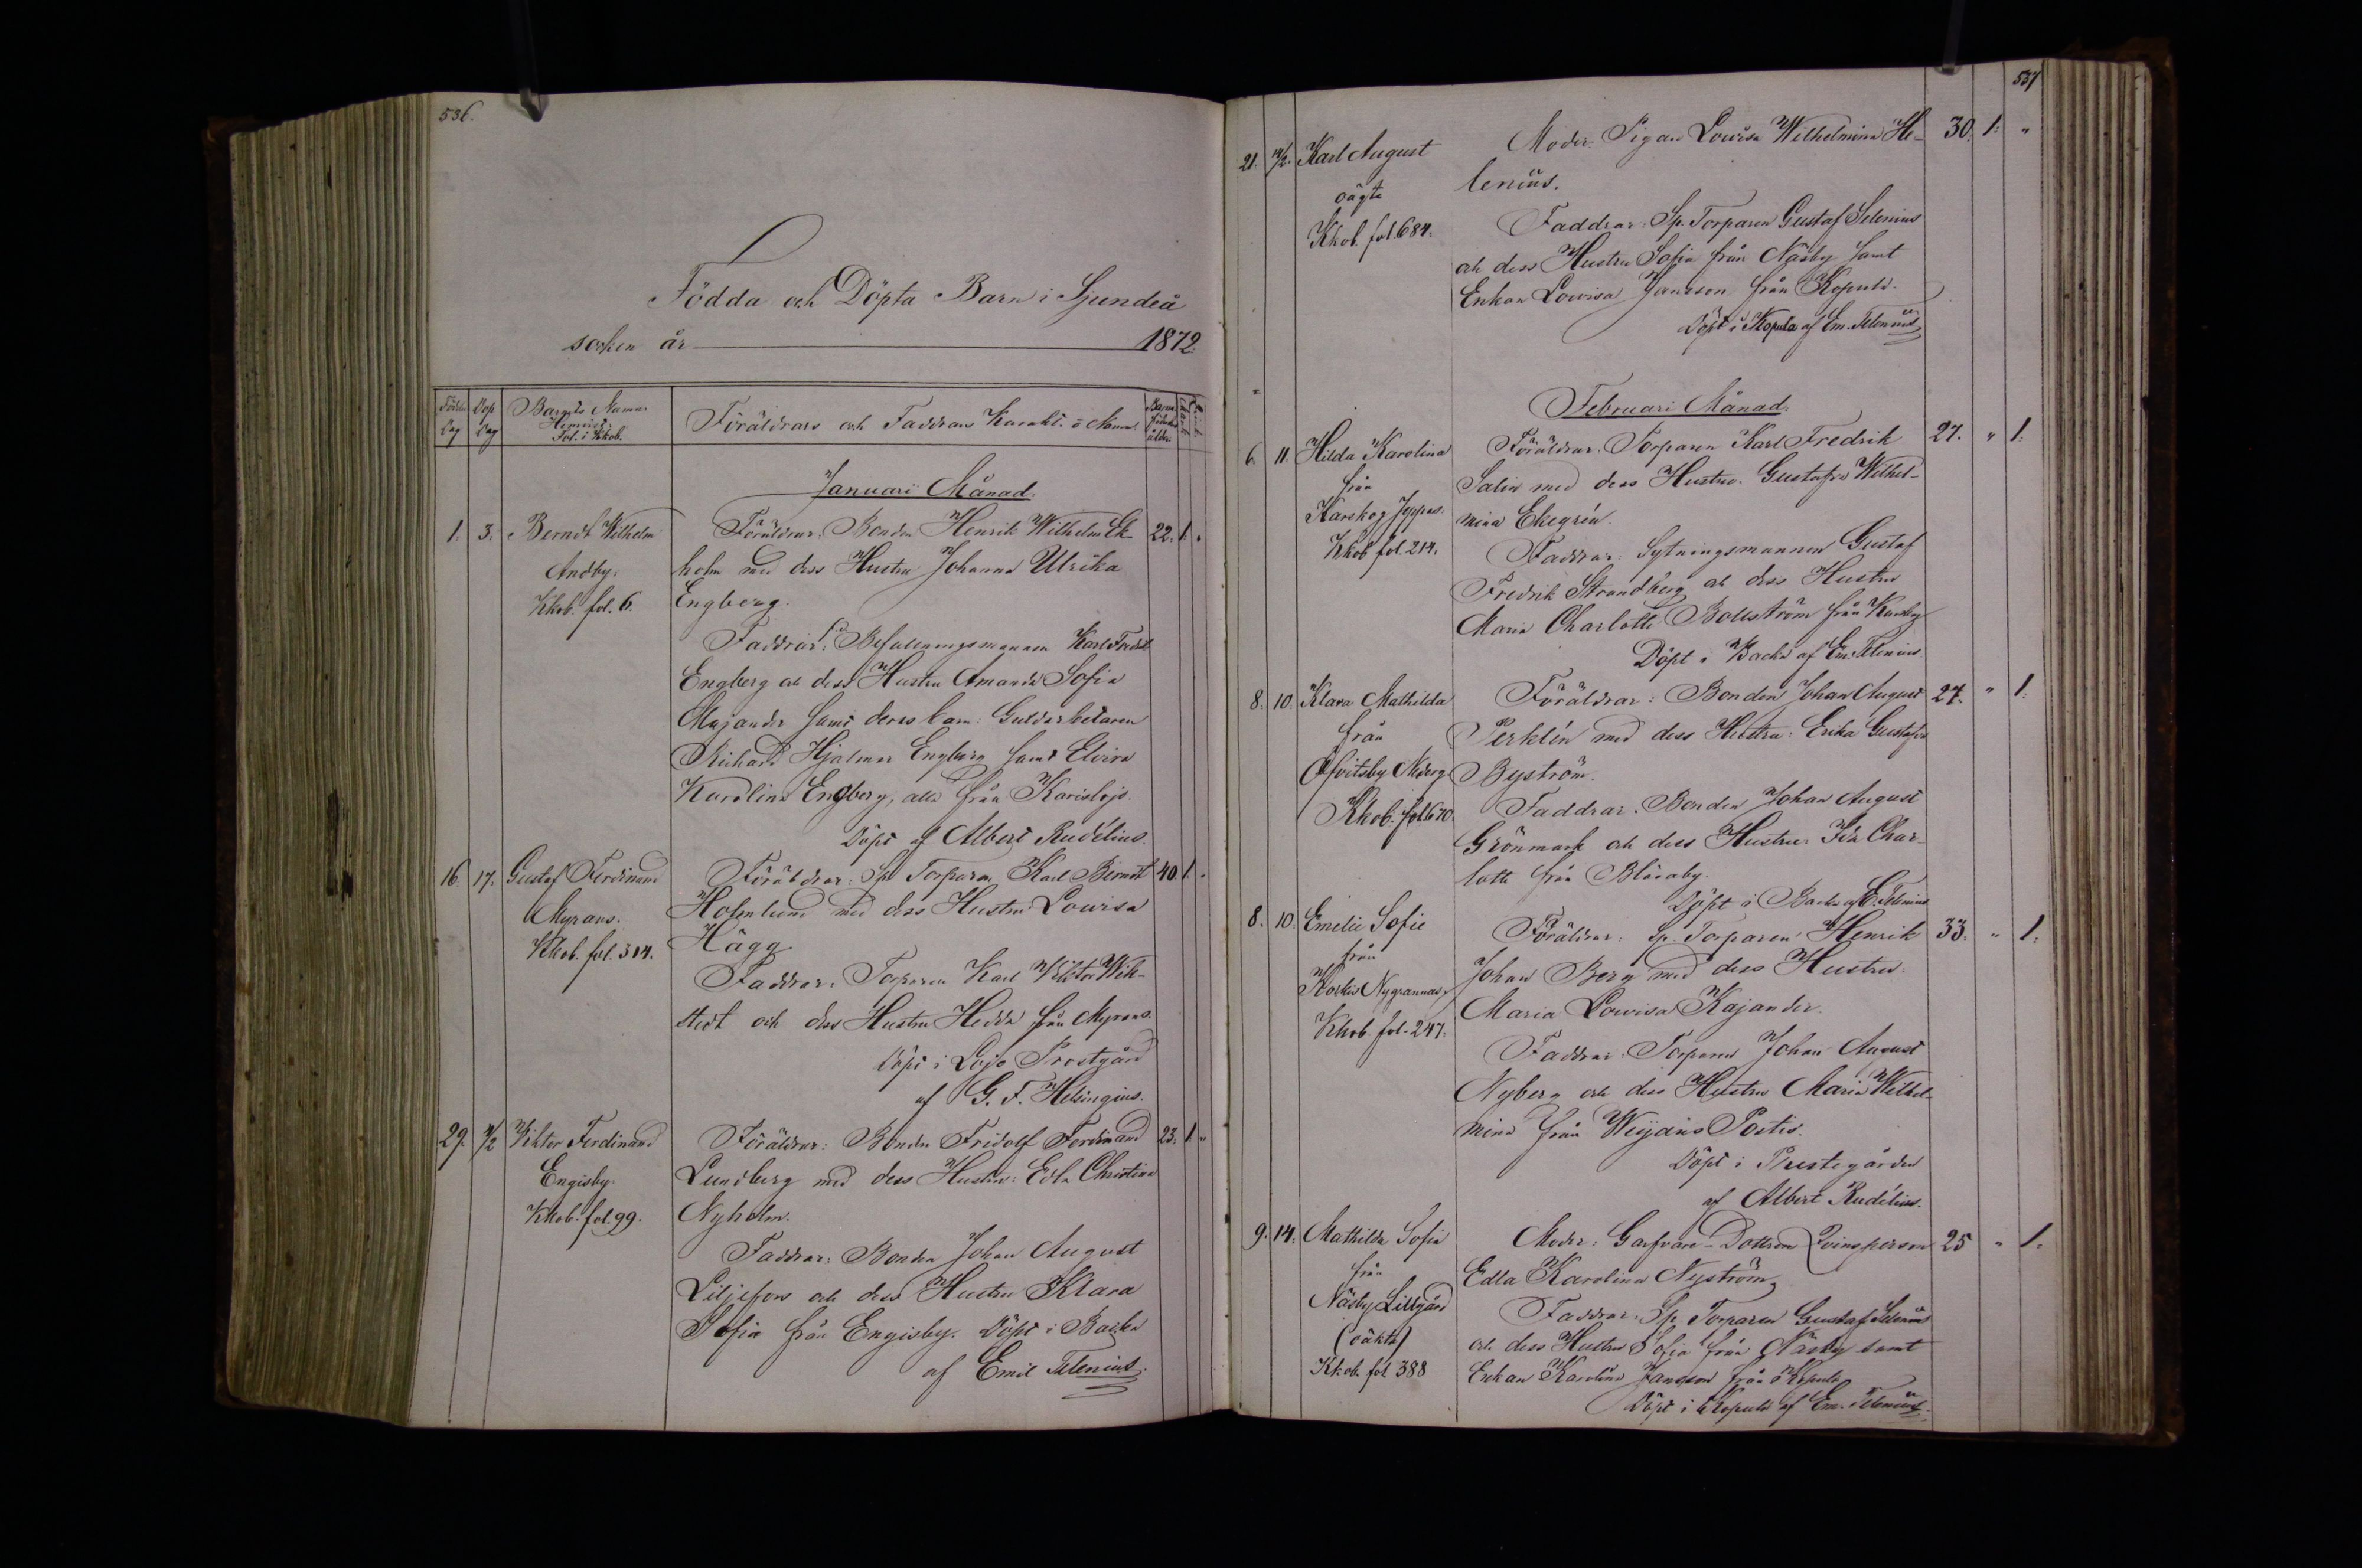 536.
Födda och Döpta Barn i Sjundeå
socken år 1872.
Födelse Dag
Dop Dag
Barnets Namn
Hemvist.
Fol. i Kkob.
Föräldrars och Faddrars Karakt. o Namn.
Januari Månad.
1. 3. Berndt Wilhelm
Andby.
Kkob. fol. 6.
Föräldrar: Bonden Henrik Wilhelm Ek- 22. 1. "
holm med dess Hustru Johanna Ulrika
Engberg.
Faddrar: Befallningsmannen Karl Fredrik
Engberg och dess Hustru Amanda Sofia
Majander samt deras barn: Guldarbetaren
Richard Hjalmar Engberg samt Elvira
Karolina Engberg, alla från Karislojo.
Döpt af Albert Rudélius.
16. 17. Gustaf Ferdinand
Myrans.
Kkob. fol. 314.
Föräldrar: Sp. Torparen Karl Berndt 40. 1. "
Holmlund med dess Hustru Lovisa
Hägg.
Faddrar: Torparen Karl Viktor Wik-
stedt och dess Hustru Hedda från Myrans.
Döpt i Lojo Prostgård
af G. F. Helsingius.
29. 11/2 Viktor Ferdinand
Engisby.
Kkob. fol. 99.
Föräldrar: Bonden Fridolf Ferdinand 23. 1. "
Lundberg med dess Hustru: Edla Christina
Nyholm.
Faddrar: Bonden Johan August
Liljefors och dess Hustru Klara
Sofia från Engisby. Döpt i Backa
af Emil Telenius.
537
21. 14/2. Karl August
oägta
Kkob. fol. 684.
Moder: Pigan Lovisa Wilhelmina He- 30. 1: "
lenius.
Faddrar: Sp. Torparen Gustaf Selenius
och dess Hustru Sofia från Näsby samt
Enkan Lovisa Jansson från Kopula.
Döpt i Kopula af Em. Telenius
Februari Månad.
6. 11. Hilda Karolina
från
Karskog Jeppas.
Kkob fol. 214.
Föräldrar: Torparen Karl Fredrik 27. " 1.
Salin med dess Hustru. Gustafva Wilhel-
mina Ekegrén.
Faddrar: Sytningsmannen Gustaf
Fredrik Strandberg och dess Hustru
Maria Charlotta Bollström från
Döpt i Backa af Em. Telenius.
8. 10. Klara Mathilda
från
Qvitsby Nederg.
Kkob. fol. 670.
Föräldrar: Bonden Johan August 27. " 1.
Perklén med dess Hustru: Erika Gustafva
Byström.
Faddrar: Bonden Johan August
Grönmark och dess Hustru: Ida Char-
lotta från Blåsaby.
Döpt i Backa af E. Telenius
8. 10. Emelie Sofie
från
Korkis Nygrannas.
Kkob fol. 247.
Föräldrar: Sp. Torparen Henrik 33. " 1.
Johan Berg med dess Hustru:
Maria Lovisa Kajander.
Faddrar: Torparen Johan August
Nyberg och dess Hustru Maria Wilhel-
mina från Weijans Postis.
Döpt i Prestegården
af Albert Rudélius.
9. 14. Mathilda Sofia
från
Näsby Lillgård
(oäkta)
Kkob. fol 388
Moder: Garfvare-Dottren Qvinsperson 25 " 1.
Edla Karolina Nyström.
Faddrar: Sp. Torparen Gustaf Selenius
och dess Hustru Sofia från Näsby samt
Enkan Karolina Jansson från Kopula
Döpt i Kopula af Em. Telenius.